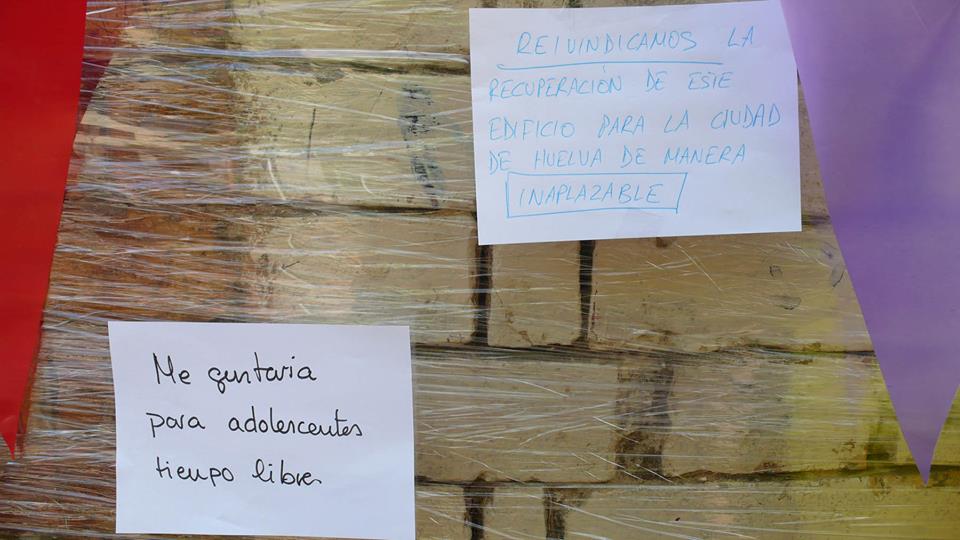 REIVINDICAMOS LA
RECUPERACIÓN DE ESTE
EDIFICIO PARA LA CIUDAD
DE HUELVA DE MANERA
INAPLAZABLE
Me gustaria
para adolescentes
tiempo libre